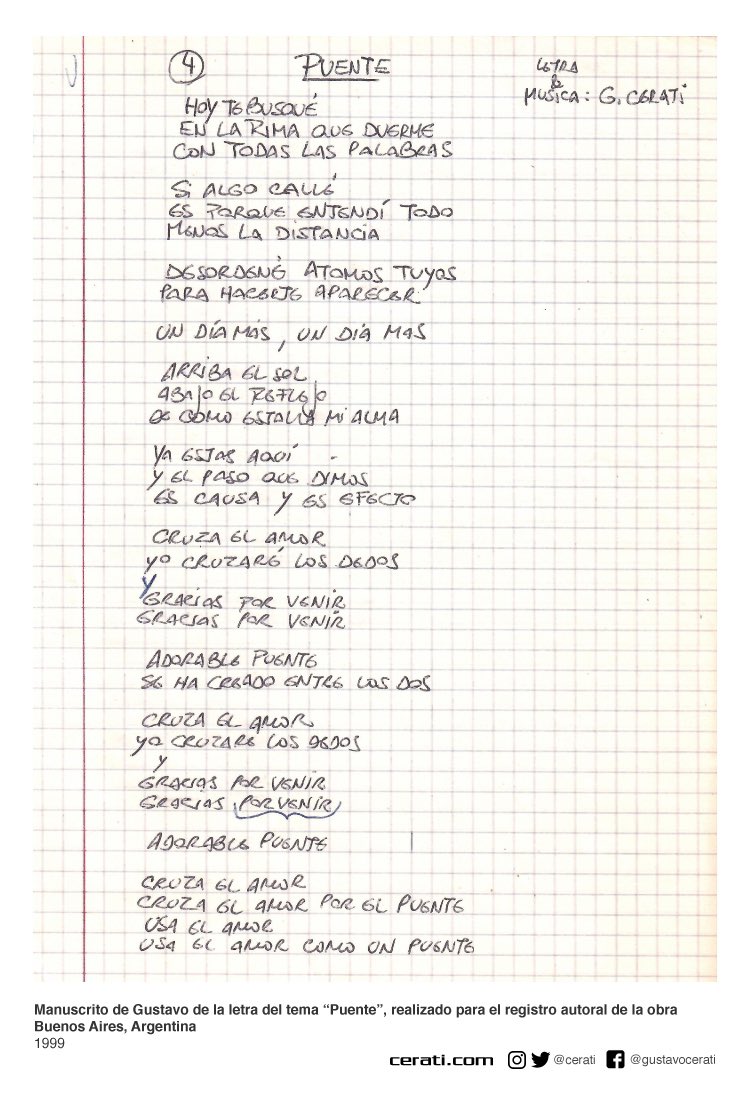 4 PUENTE
LETRA
&
MUSICA: G. CERATI
HOY TE BUSQUÉ
EN LA RIMA QUE DUERME
CON TODAS LAS PALABRAS
SI ALGO CALLÉ
ES PORQUE ENTENDÍ TODO
MENOS LA DISTANCIA
DESORDENÉ ATOMOS TUYOS
PARA HACERTE APARECER
UN DÍA MÁS, UN DÍA MAS
ARRIBA EL SOL
ABAJO EL REFLEJO
DE COMO ESTALLA MI ALMA
YA ESTAS AQUÍ
Y EL PASO QUE DIMOS
ES CAUSA Y ES EFECTO
CRUZA EL AMOR
YO CRUZARÉ LOS DEDOS
Y
GRACIAS POR VENIR
GRACIAS POR VENIR
ADORABLE PUENTE
SE HA CREADO ENTRE LOS DOS
CRUZA EL AMOR
YO CRUZARÉ LOS DEDOS
Y
GRACIAS POR VENIR
GRACIAS PORVENIR
ADORABLE PUENTE
CRUZA EL AMOR
CRUZA EL AMOR POR EL PUENTE
USA EL AMOR
USA EL AMOR COMO UN PUENTE
Manuscrito de Gustavo de la letra del tema “Puente”, realizado para el registro autoral de la obra
Buenos Aires, Argentina
1999
cerati.com @cerati @gustavocerati